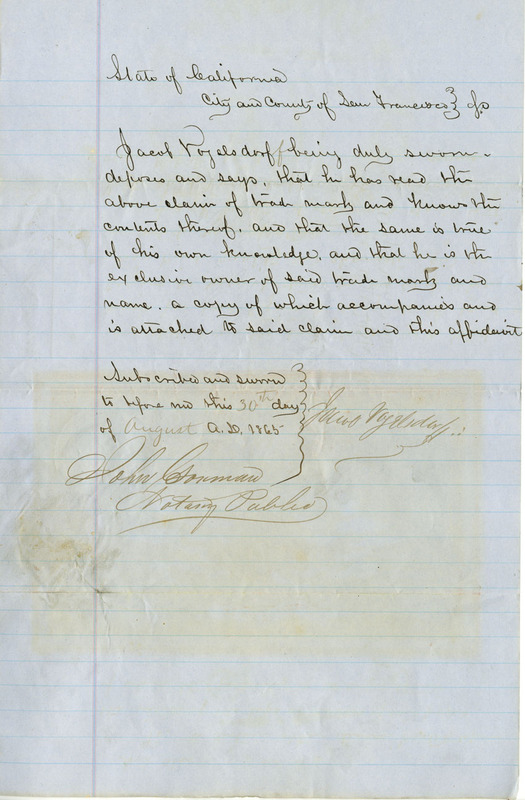 State of California
City and County of San Francisco } ss
Jacob Vogelsdorff being duly sworn.
deposes and says, that he has read the
above claim of trade mark and knows the
contents thereof, and that the same is true
of his own knowledge, and that he is the
exclusive owner of said trade mark and
name. a copy of which accompanies and
is attached to said claim and this affidavit
Subscribed and sworn
to before me this 30th day
of August A.D. 1865
Jacob Vogelsdorff
John Gorman
Notary Public